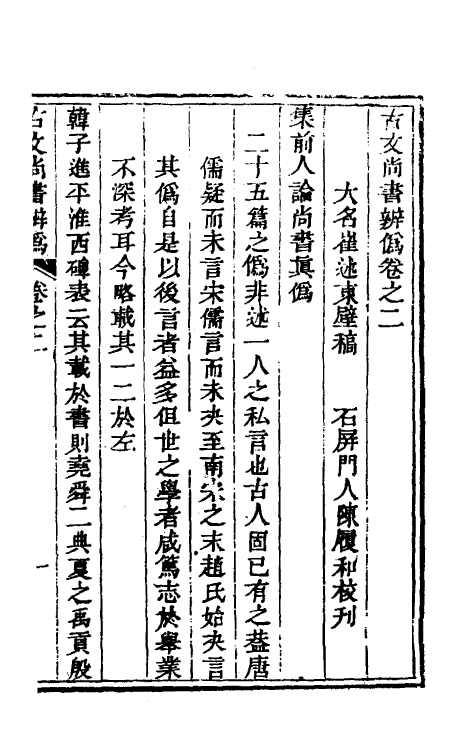 古文尚書辨僞卷之二
大名崔述東壁稿　石屏門人陳履和校刊
集前人論尚書眞僞
二十五篇之僞非述一人之私言也古人固已有之葢唐
儒疑而未言宋儒言而未決至南宋之末趙氏始決言
其僞自是以後言者益多但世之學者咸篤志於舉業
不深考耳今略載其一二於左
韓子進平淮西碑表云其載於書則堯舜二典夏之禹貢殷
古文尚書辨僞　卷之二　一